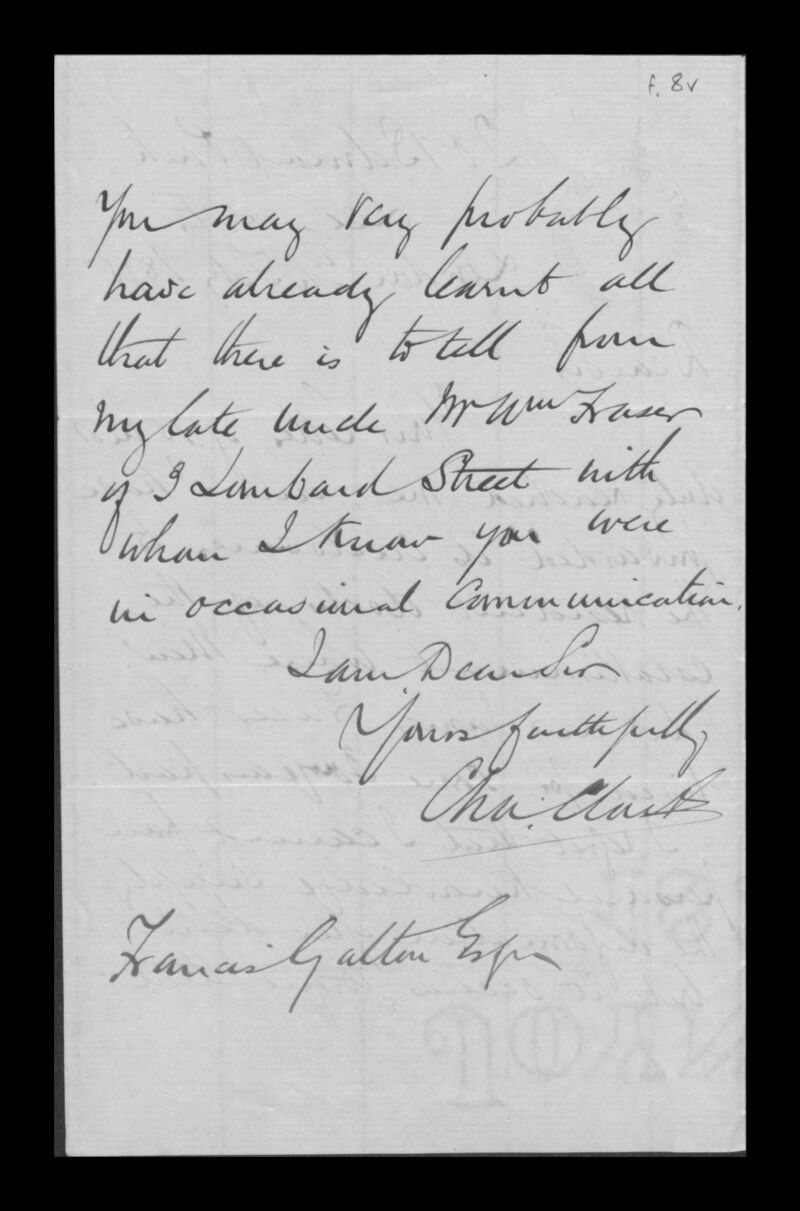 f. 8v
You may very probably
have already learnt all
that there is to tell from
my late Uncle Mr Wm Fraser
of 3 Lombard Street with
whom I know you were
in occasional Communication.
I am Dear Sir
Yours faithfully
Cha. Clark
Francis Galton Esqre